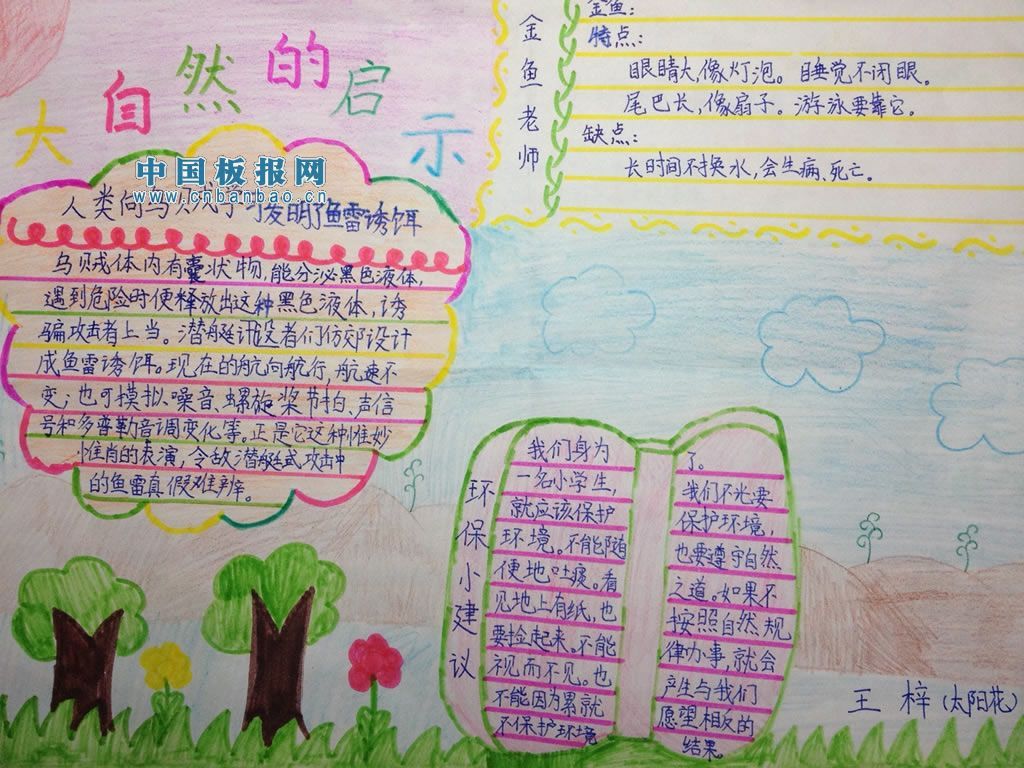 大自然的启示
中国板报网
www.cnbanbao.cn
人类向乌贼学习发明了鱼雷诱饵
乌贼体内有囊状物,能分泌黑色液体,
遇到危险时便释放出这种黑色液体,诱
骗攻击者上当。潜艇设者们仿郊设计
成鱼雷诱饵。现在的航向航行,航速不
变;也可摸拟噪音、螺旋桨节拍、声信
号和多普勒音调变化等。正是它这种惟妙
惟肖的表演,令敌潜艇或攻击中
的鱼雷真假难辨。
金鱼老师
金鱼:
特点:
眼睛大,像灯泡。睡觉不闭眼。
尾巴长,像扇子。游泳要靠它。
缺点:
长时间不换水,会生病、死亡。
环保小建议
我们身为
一名小学生,
就应该保护
环境。不能随
便地吐痰。看
见地上有纸,也
要捡起来。不能
视而不见。也
不能因为累就
不保护环境
了。
我们不光要
保护环境,
也要遵守自然
之道。如果不
按照自然规
律办事,就会
产生与我们
愿望相反的
结果。
王梓(太阳花)